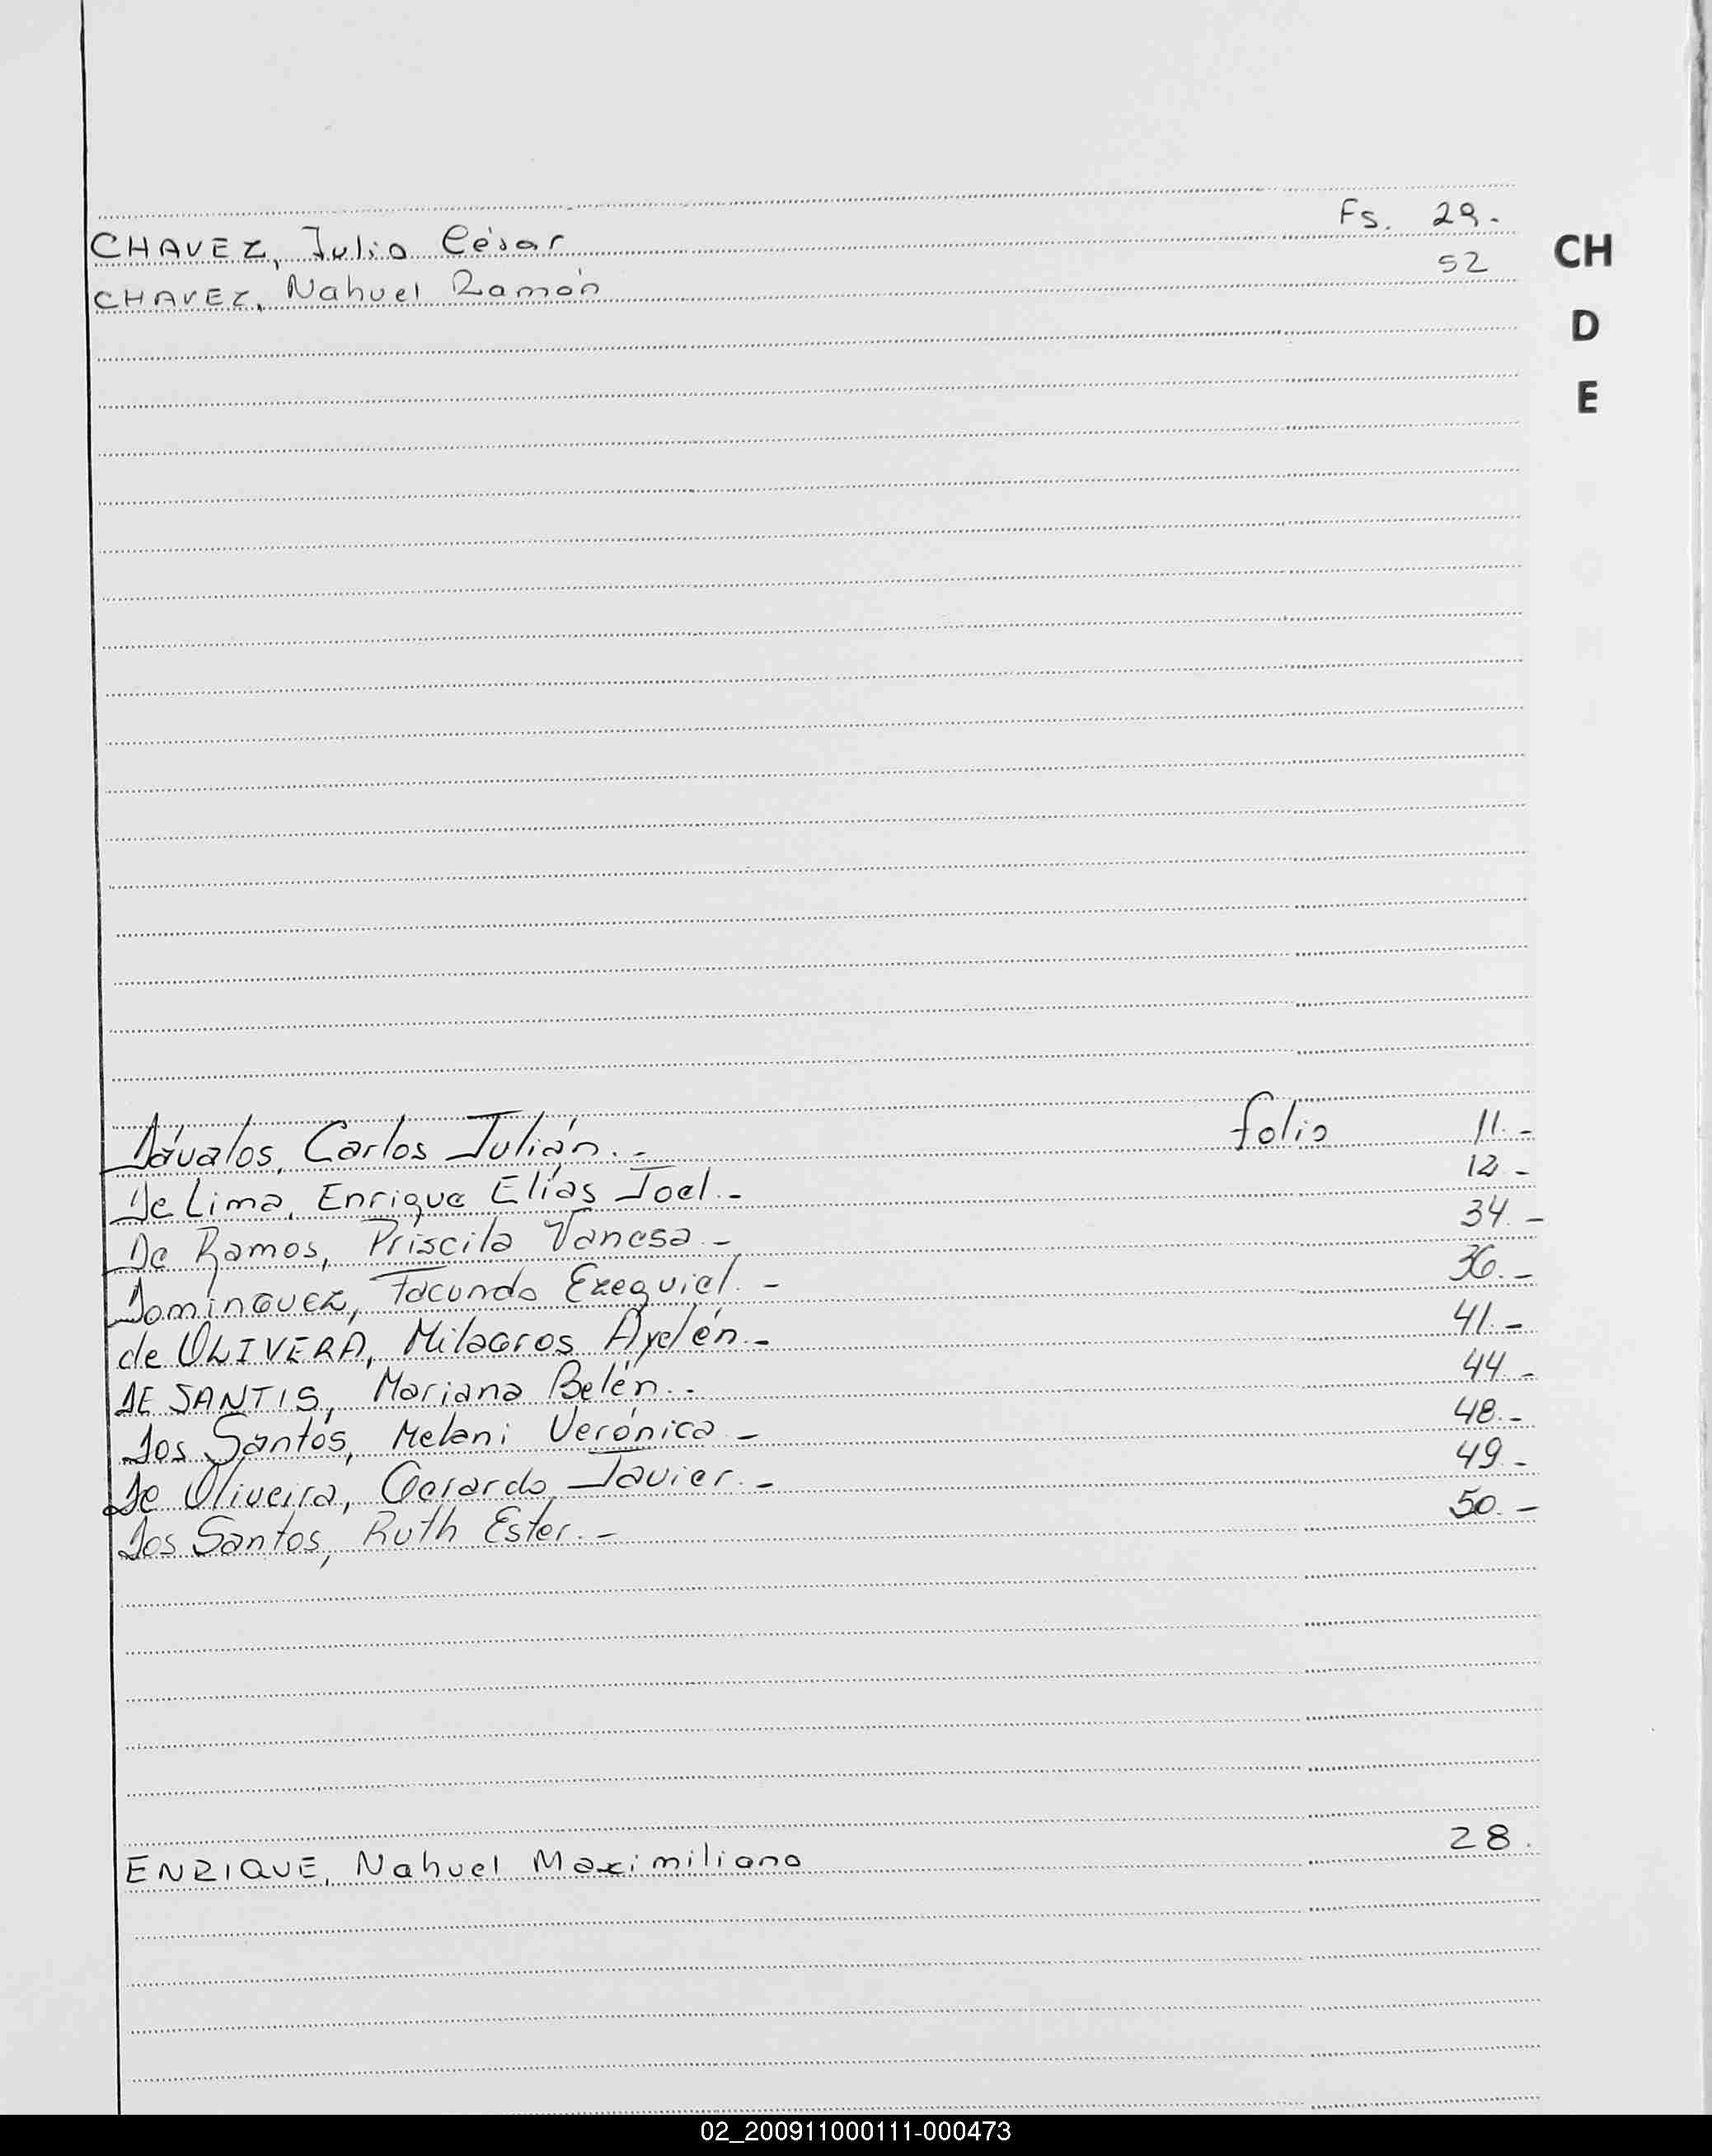 Fs. 29.
CHAVEZ, Julio César
CH
52
CHAVEZ, Nahuel Ramón
D
E
Dávalos, Carlos Julián.- folio 11.-
De Lima, Enrique Elías Joel.- 12-
De Ramos, Priscila Vanesa.- 34.-
DomínGUEZ, Facundo Ezequiel.- 36.-
de OLIVERA, Milagros Ayelén.- 41.-
DE SANTIS, Mariana Belén.- 44.-
Dos Santos, Melani Verónica- 48.-
De Oliveira, Gerardo Javier.- 49-
Dos Santos, Ruth Ester.- 50.-
ENRIQUE, Nahuel Maximiliano 28.
02_200911000111-000473